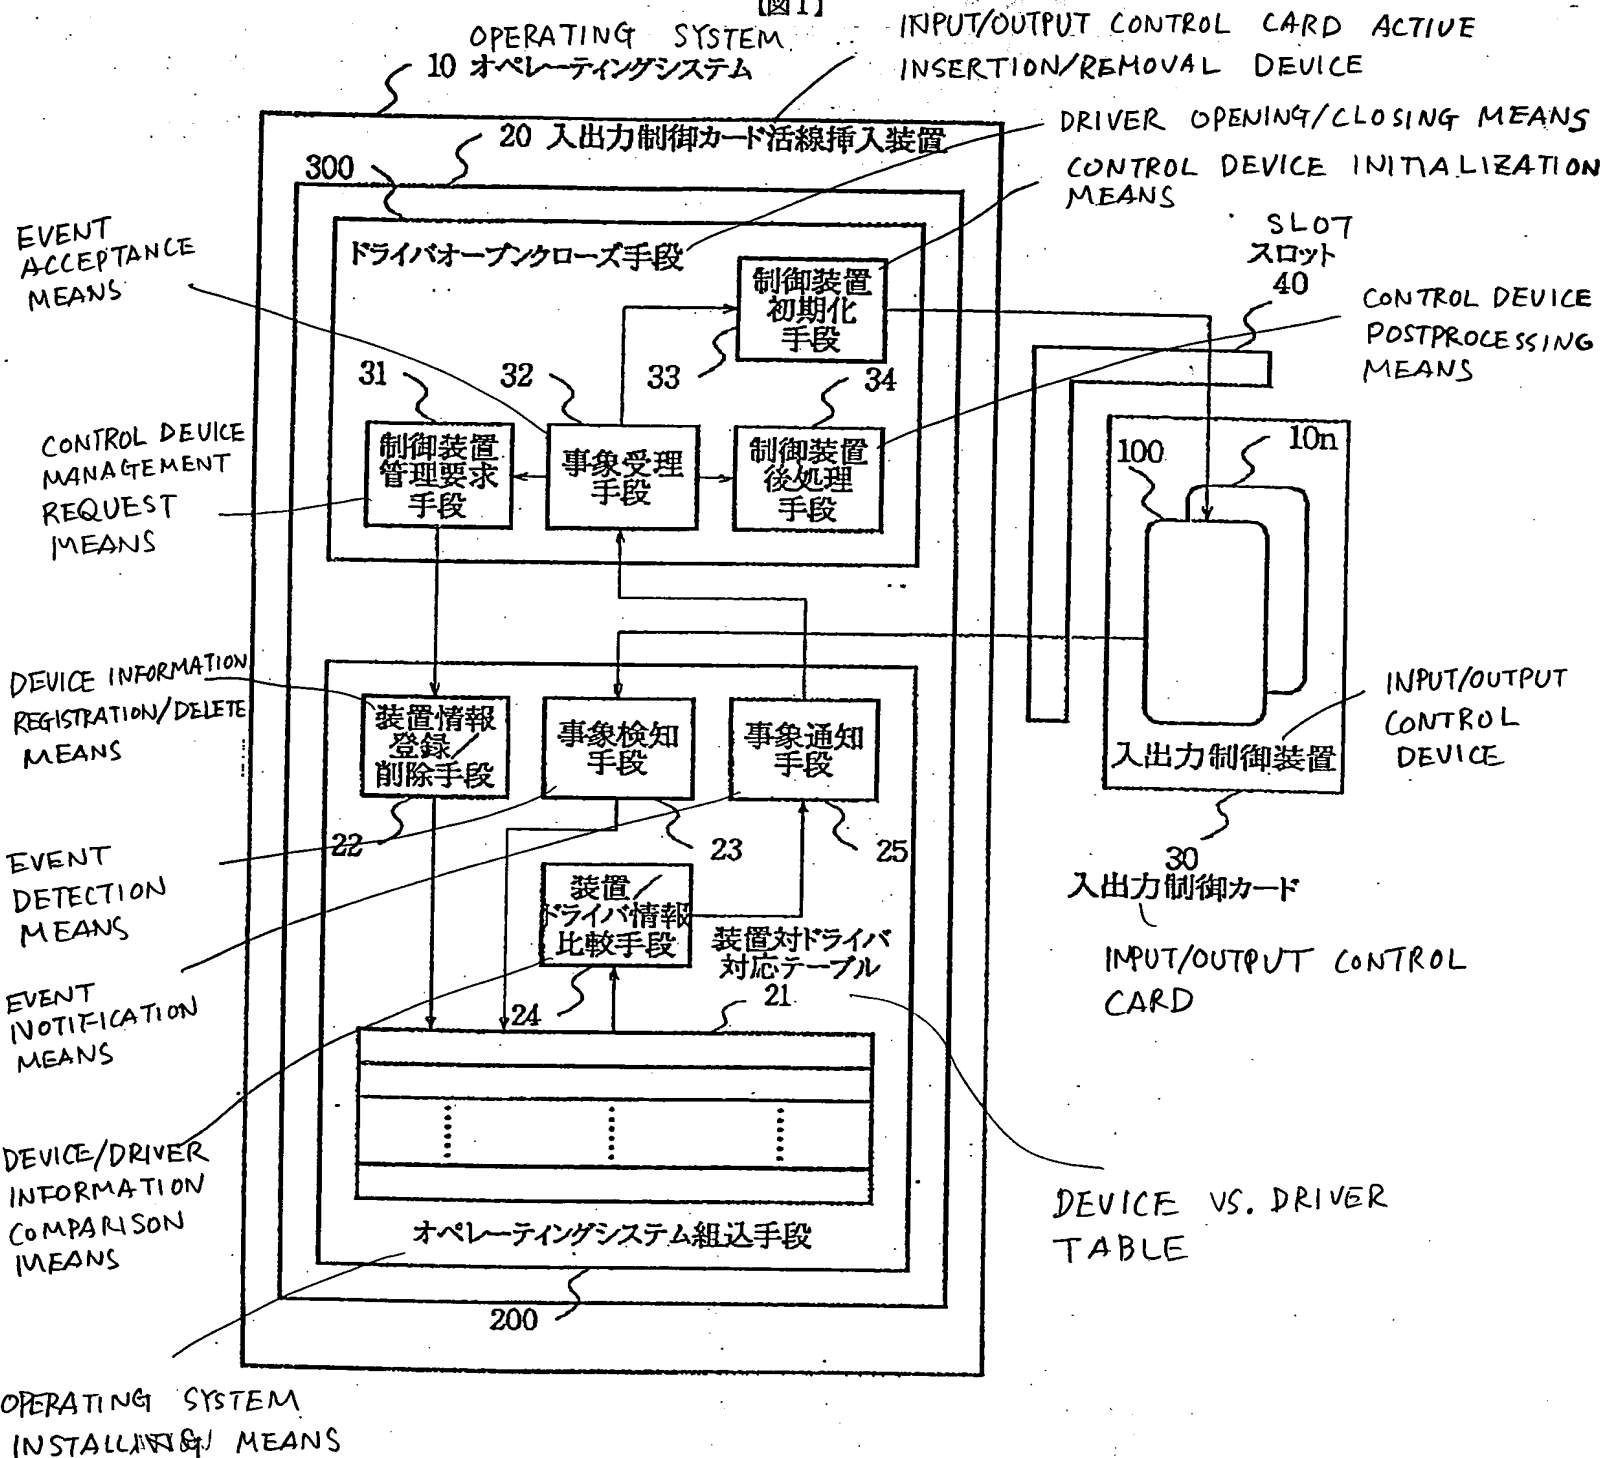 【図1】
OPERATING SYSTEM
10 オペレーティングシステム
INPUT/OUTPUT CONTROL CARD ACTIVE
INSERTION/REMOVAL DEVICE
20 入出力制御カード活線挿入装置
DRIVER OPENING/CLOSING MEANS
CONTROL DEVICE INITIALIZATION
MEANS
300
EVENT
ACCEPTANCE
MEANS
ドライバオープンクローズ手段
制御装置
初期化
手段
SLOT
スロット
40
CONTROL DEVICE
POSTPROCESSING
MEANS
31
32
33
34
CONTROL DEVICE
MANAGEMENT
REQUEST
MEANS
制御装置
管理要求
手段
事象受理
手段
制御装置
後処理
手段
100
10n
DEVICE INFORMATION
REGISTRATION/DELETE
MEANS
装置情報
登録/
削除手段
事象検知
手段
事象通知
手段
入出力制御装置
INPUT/OUTPUT
CONTROL
DEVICE
22
23
25
30
入出力制御カード
INPUT/OUTPUT CONTROL
CARD
EVENT
DETECTION
MEANS
装置/
ドライバ情報
比較手段
装置対ドライバ
対応テーブル
21
24
EVENT
NOTIFICATION
MEANS
DEVICE/DRIVER
INFORMATION
COMPARISON
MEANS
DEVICE VS. DRIVER
TABLE
オペレーティングシステム組込手段
200
OPERATING SYSTEM
INSTALLING MEANS